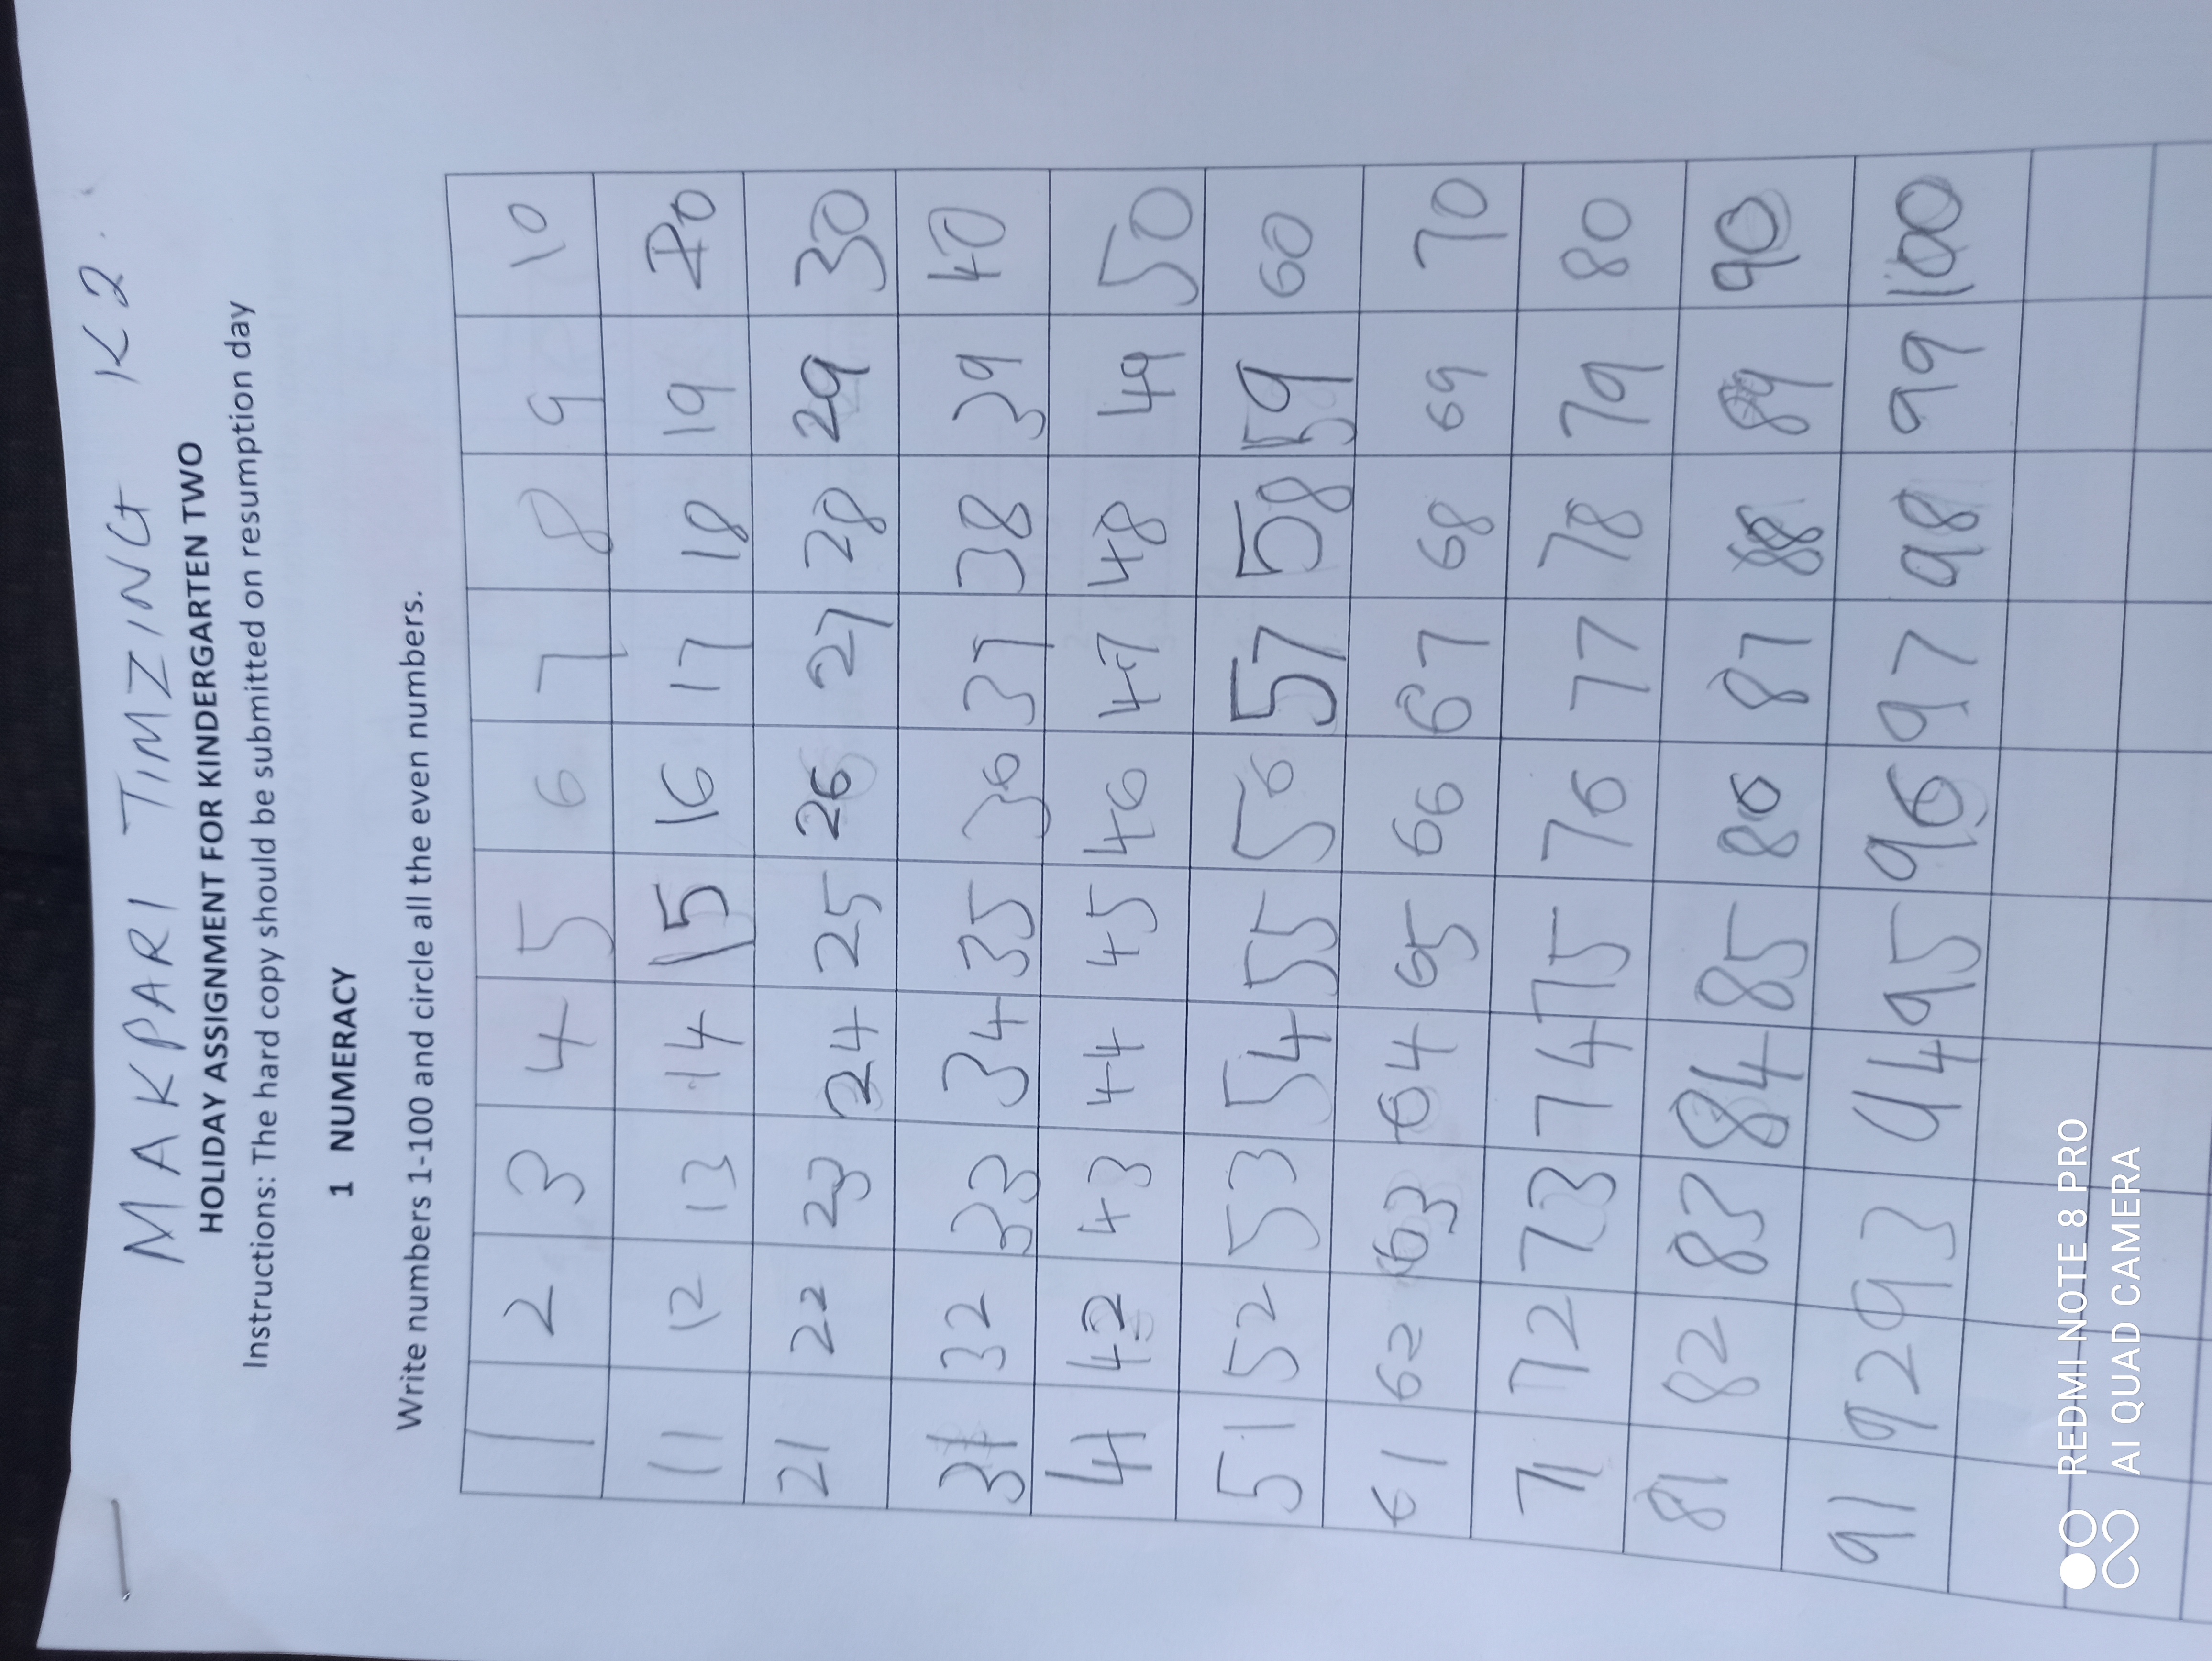 MAKPARI TIMZING K2.
HOLIDAY ASSIGNMENT FOR KINDERGARTEN TWO
Instructions: The hard copy should be submitted on resumption day
1 NUMERACY
Write numbers 1-100 and circle all the even numbers.
1 2 3 4 5 6 7 8 9 10
11 12 13 14 15 16 17 18 19 20
21 22 23 24 25 26 27 28 29 30
31 32 33 34 35 36 37 38 39 40
41 42 43 44 45 46 47 48 49 50
51 52 53 54 55 56 57 58 59 60
61 62 63 64 65 66 67 68 69 70
71 72 73 74 75 76 77 78 79 80
81 82 83 84 85 86 87 88 89 90
91 92 93 94 95 96 97 98 99 100
REDMI NOTE 8 PRO
AI QUAD CAMERA